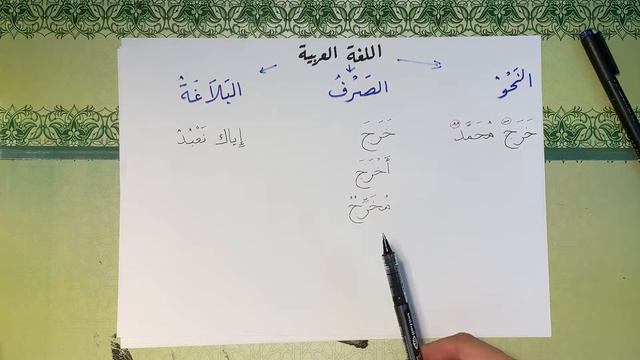 اللغة العربية
النَّحْوُ
الصَّرْفُ
البَلَاغَةُ
خَرَجَ مُحَمَّدٌ
خَرَجَ
أَخْرَجَ
مُخَرِّجٌ
إِياك نَعْبُدُ